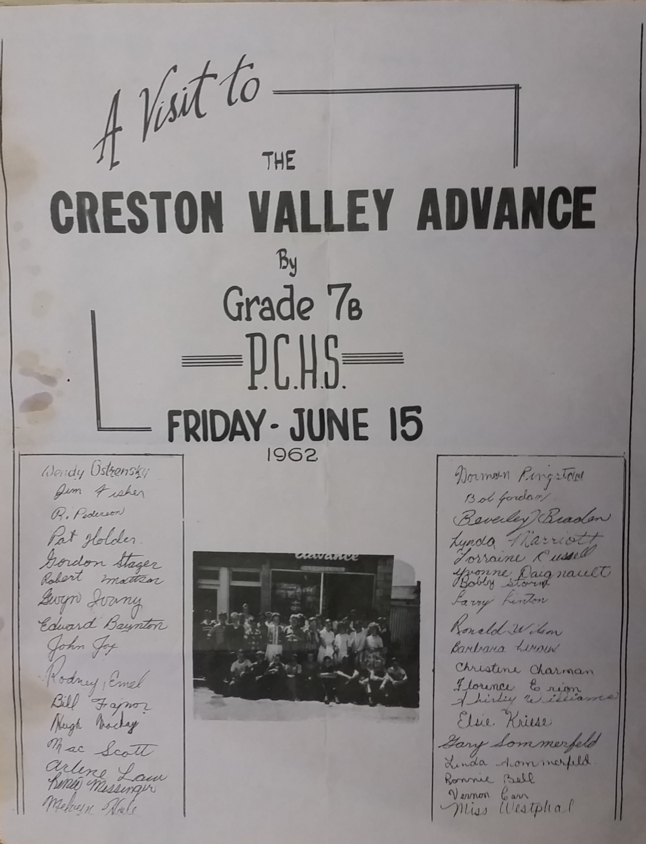 A Visit to
THE
CRESTON VALLEY ADVANCE
By
Grade 7B
P.C.H.S.
FRIDAY - JUNE 15
1962
Wendy Ostrensky
Jim Fisher
R. Pederson
Pat Holder
Gordon Stager
Robert
Gwyn
Edward Baynton
John Fox
Rodney
Bill
Hugh
Mac Scott
Arlene Law
Renée Messinger
Melvyn Hale
advance
Norman Pingstone
Bob Gordon
Beverley Braden
Lynda Marriott
Lorraine Russell
Yvonne Daignault
Bobby Storm
Larry Linton
Ronald
Barbara
Christine Charman
Florence
Shirley Williams
Elsie Kriese
Gary Sommerfeld
Linda Sommerfeld
Ronnie Bell
Vernon Carr
Miss Westphal